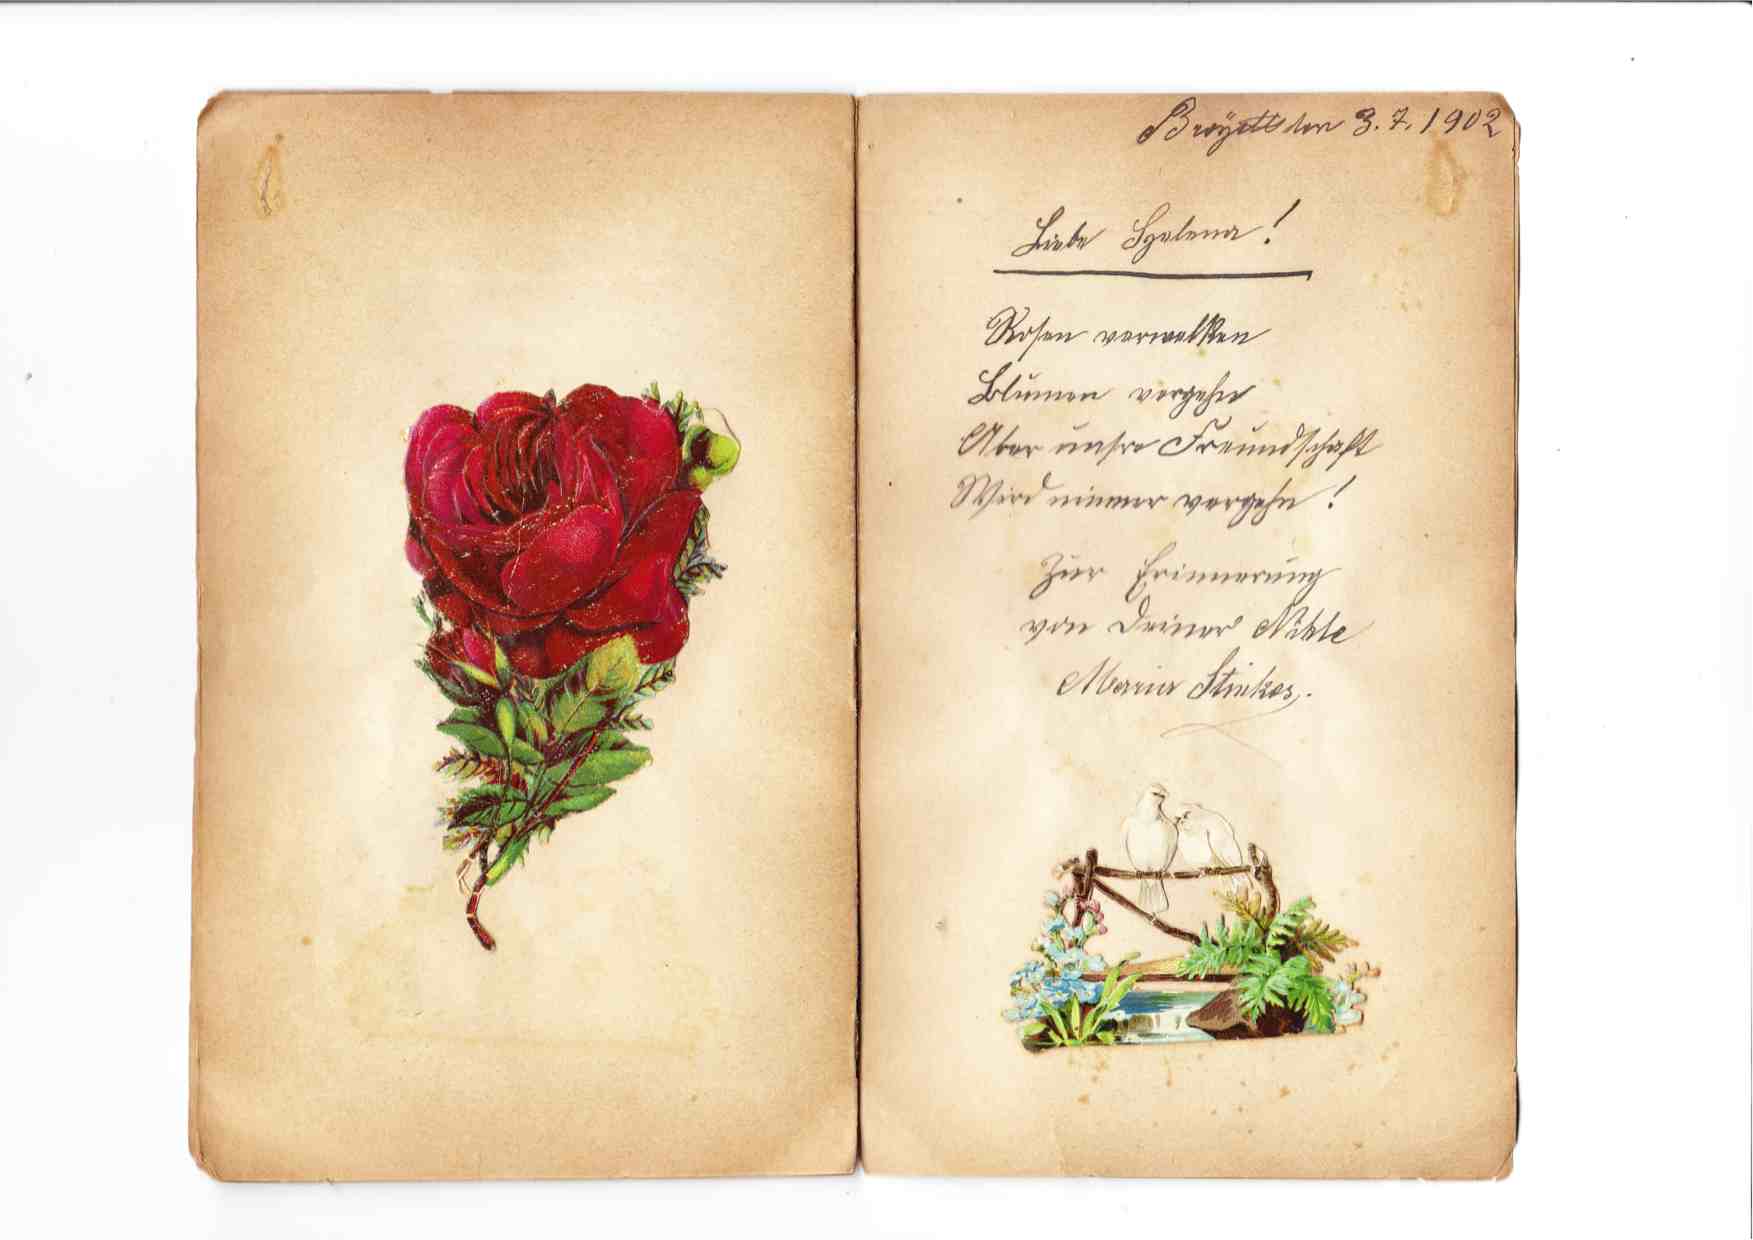 den 3.7.1902
Liebe Helena!
Rosen verwelken
Blumen vergehn
Aber unsre Freundschaft
Wird nimmer vergehn!
Zur Erinnerung
von Deiner
Maria